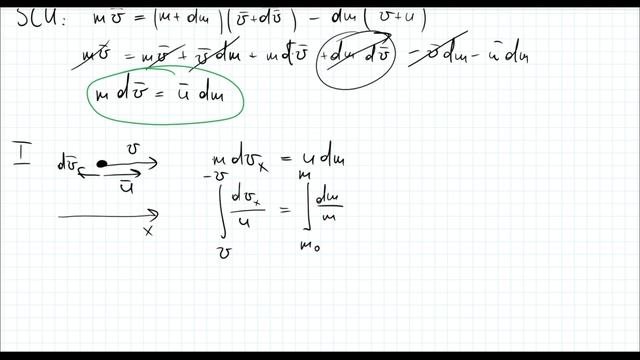 ЗСИ: m v̄ = (m + dm)(v̄ + dv̄) − dm(v̄ + ū)
m v̄ = m v̄ + v̄ dm + m dv̄ + dm dv̄ − v̄ dm − ū dm
m dv̄ = ū dm
I
dv̄ v ū x
m dvₓ = u dm
∫_{v}^{-v} dvₓ/u = ∫_{m₀}^{m} dm/m